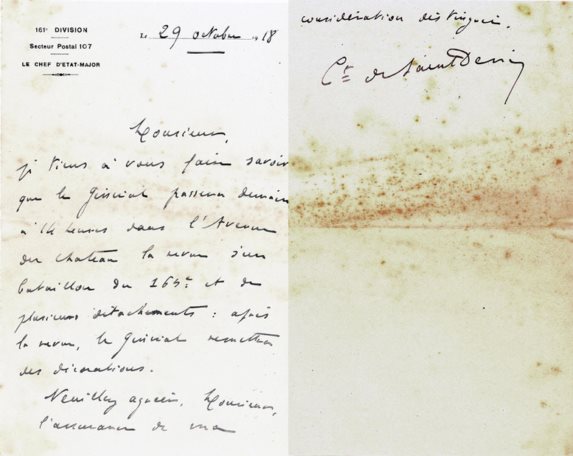 161e DIVISION
Secteur Postal 107
LE CHEF D'ETAT-MAJOR
Le 29 octobre 1918
Monsieur,
je tiens à vous faire savoir
que le Général passera demain
à 14 heures dans l'Avenue
du chateau la revue d'un
bataillon du 163e et de
plusieurs détachements : après
la revue, le Général remettra
des décorations.
Veuillez agréer, Monsieur,
l'assurance de ma
considération distinguée.
de Saint Denis